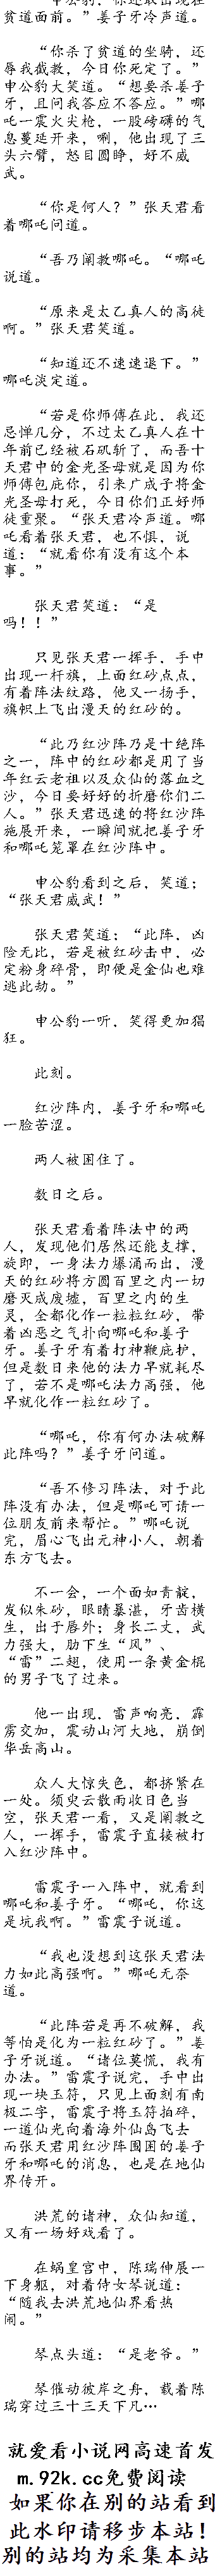 申公豹，你还敢出现在
贫道面前。”姜子牙冷声道。
“你杀了贫道的坐骑，还
辱我截教，今日你死定了。”
申公豹大笑道。“想要杀姜子
牙，且问我答应不答应。”哪
吒一震火尖枪，一股磅礴的气
息蔓延开来，唰，他出现了三
头六臂，怒目圆睁，好不威
武。
“你是何人？”张天君看
着哪吒问道。
“吾乃阐教哪吒。“哪吒
说道。
“原来是太乙真人的高徒
啊。”张天君笑道。
“知道还不速速退下。”
哪吒淡定道。
“若是你师傅在此，我还
忌惮几分，不过太乙真人在十
年前已经被石矶斩了，而吾十
天君中的金光圣母就是因为你
师傅包庇你，引来广成子将金
光圣母打死，今日你们正好师
徒重聚。“张天君冷声道。哪
吒看着张天君，也不惧，说
道：“就看你有没有这个本
事。”
张天君笑道：“是
吗！！”
只见张天君一挥手，手中
出现一杆旗，上面红砂点点，
有着阵法纹路，他又一扬手，
旗帜上飞出漫天的红砂的。
“此乃红沙阵乃是十绝阵
之一，阵中的红砂都是用了当
年红云老祖以及众仙的落血之
沙，今日要好好的折磨你们二
人。”张天君迅速的将红沙阵
施展开来，一瞬间就把姜子牙
和哪吒笼罩在红沙阵中。
申公豹看到之后，笑道；
“张天君威武！”
张天君笑道：“此阵，凶
险无比，若是被红砂击中，必
定粉身碎骨，即便是金仙也难
逃此劫。”
申公豹一听，笑得更加猖
狂。
此刻。
红沙阵内，姜子牙和哪吒
一脸苦涩。
两人被困住了。
数日之后。
张天君看着阵法中的两
人，发现他们居然还能支撑，
旋即，一身法力爆涌而出，漫
天的红砂将方圆百里之内一切
磨灭成废墟，百里之内的生
灵，全都化作一粒粒红砂，带
着凶恶之气扑向哪吒和姜子
牙。姜子牙有着打神鞭庇护，
但是数日来他的法力早就耗尽
了，若不是哪吒法力高强，他
早就化作一粒红砂了。
“哪吒，你有何办法破解
此阵吗？”姜子牙问道。
“吾不修习阵法，对于此
阵没有办法，但是哪吒可请一
位朋友前来帮忙。”哪吒说
完，眉心飞出元神小人，朝着
东方飞去。
不一会，一个面如青靛，
发似朱砂，眼睛暴湛，牙齿横
生，出于唇外；身长二丈，武
力强大，肋下生“风”、
“雷”二翅，使用一条黄金棍
的男子飞了过来。
他一出现，雷声响亮，霹
雳交加，震动山河大地，崩倒
华岳高山。
众人大惊失色，都挤紧在
一处。须臾云散雨收日色当
空，张天君一看，又是阐教之
人，一挥手，雷震子直接被打
入红沙阵中。
雷震子一入阵中，就看到
哪吒和姜子牙。“哪吒，你这
是坑我啊。”雷震子说道。
“我也没想到这张天君法
力如此高强啊。”哪吒无奈
道。
“此阵若是再不破解，我
等怕是化为一粒红砂了。”姜
子牙说道。“诸位莫慌，我有
办法。”雷震子说完，手中出
现一块玉符，只见上面刻有南
极二字，雷震子将玉符拍碎，
一道仙光向着海外仙岛飞去
而张天君用红沙阵围困的姜子
牙和哪吒的消息，也是在地仙
界传开。
洪荒的诸神，众仙知道，
又有一场好戏看了。
在蜗皇宫中，陈瑞伸展一
下身躯，对着侍女琴说道：
“随我去洪荒地仙界看热
闹。”
琴点头道：“是老爷。”
琴催动彼岸之舟，载着陈
瑞穿过三十三天下凡…
就爱看小说网高速首发
m.92k.cc免费阅读
如果你在别的站看到
此水印请移步本站！
别的站均为采集本站